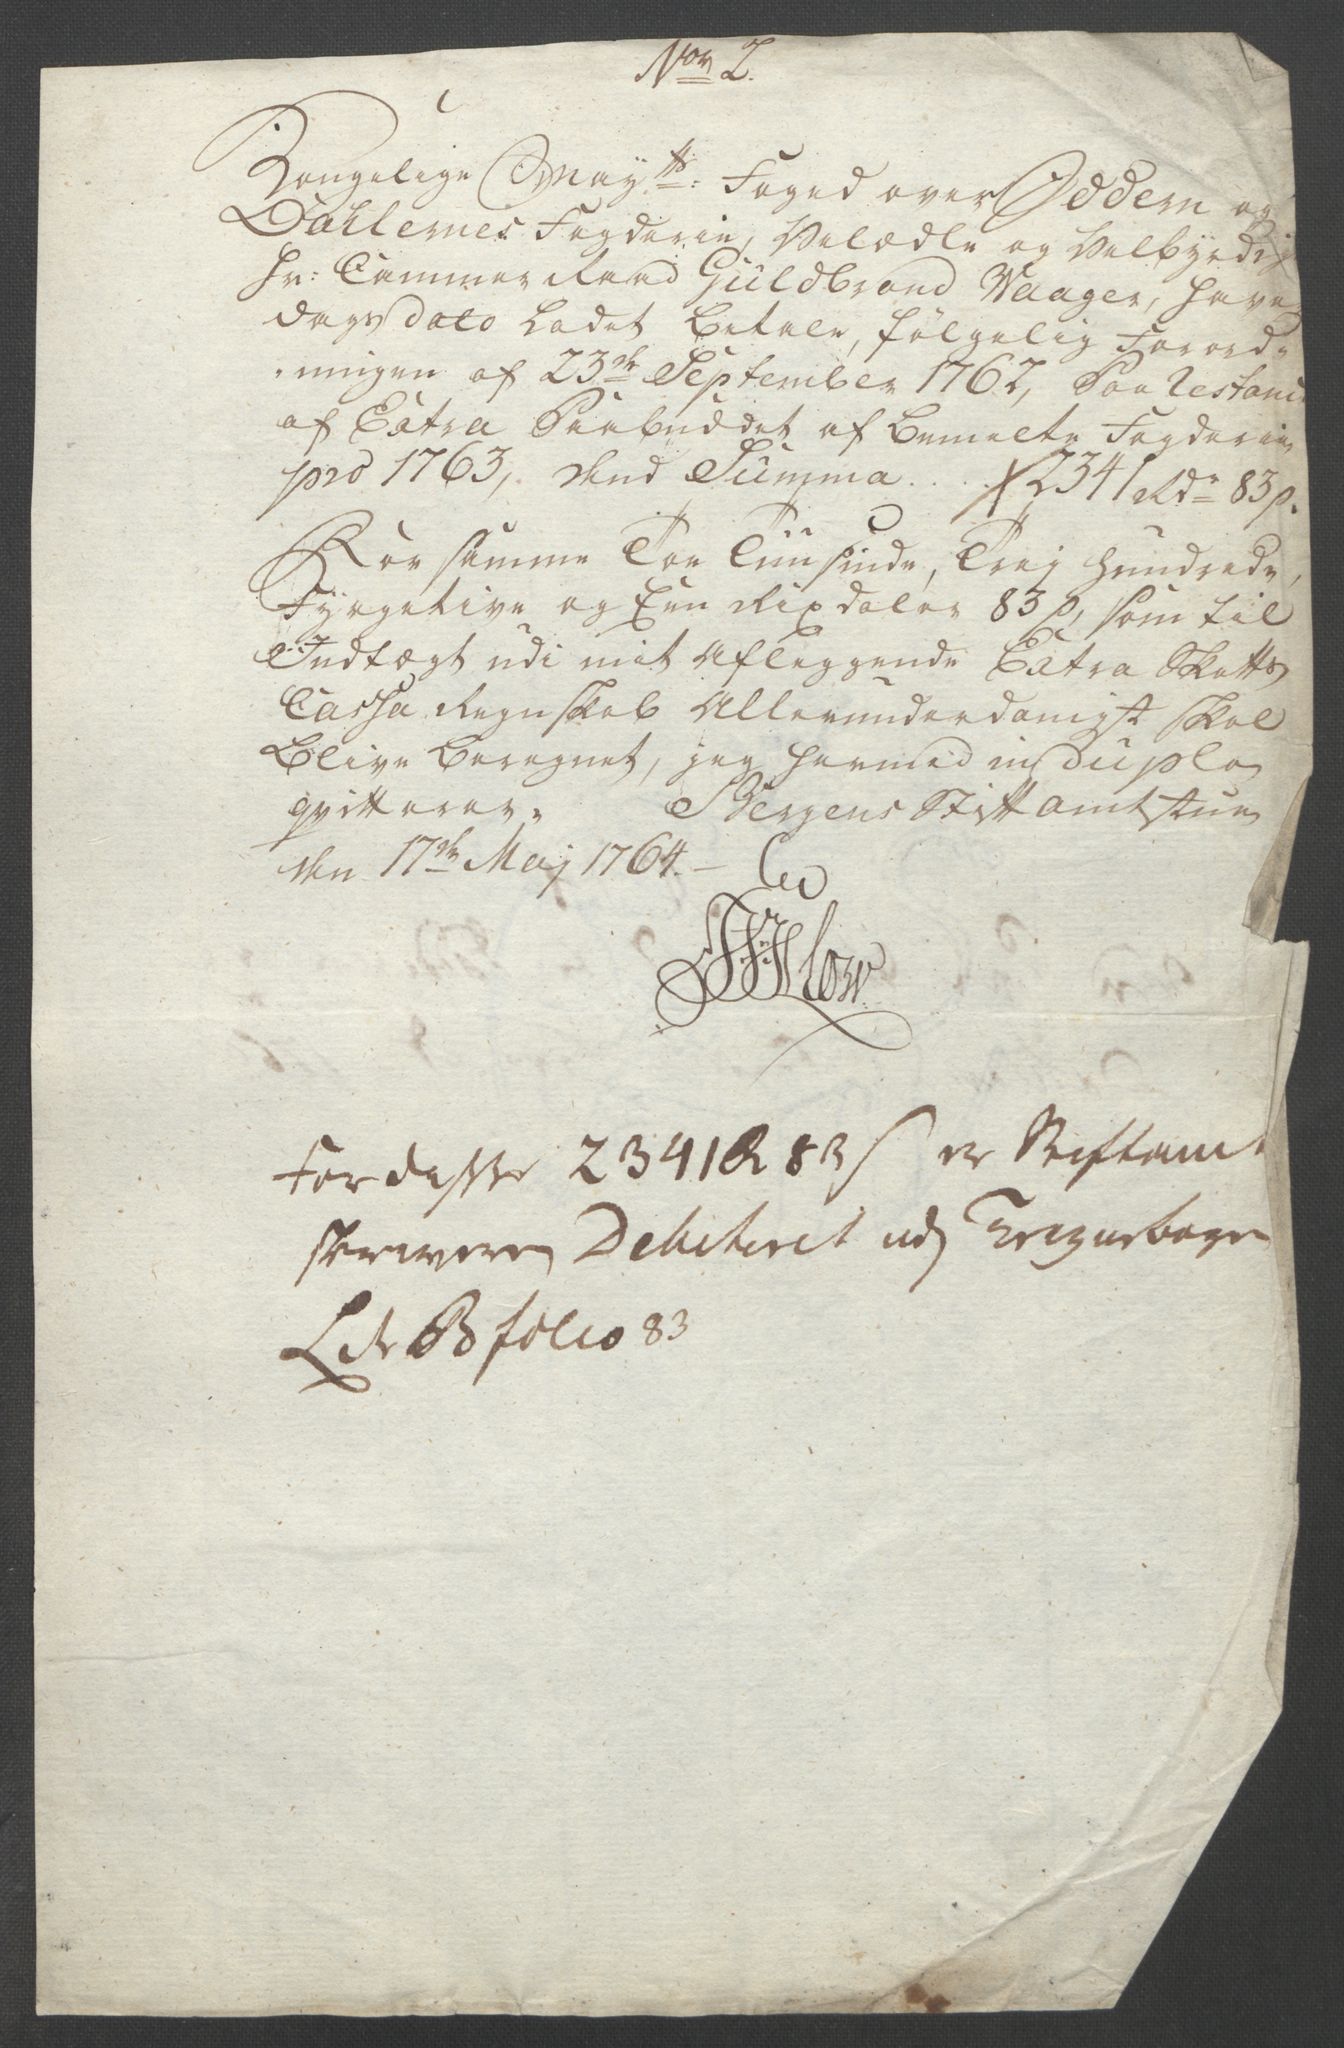 Nor 2.
Kongelige Mayts: Foged over Jeddern og
Dahlernes Fogderie, Velædle og Velbyrdig
Hr: Cammer Raad Guldbrand Vaager, haver
dags dato Ladet Betale, følgelig Forord-
ningen af 23de September 1762, Paa Restance
af Extra Paabuddet af bemelte Fogderie
pro 1763, den Summa . . . . 2341 Rdr 83 s.
For samme Toe Tuusinde, Trej Hundrede,
Fyrgetive og Een Rixdaler 83 s, som til
Indtægt udi mit Aflæggende Extra Skatts
Cassa Regnskab Allerunderdanigst skal
Blive Beregnet, jeg hermed in Duplo
qvitterer. Bergens Stiftamtstue
den 17de Maj 1764. –
For disse 2341 R 83 s er Stiftamt
skriveren Debiteret udj Tregnebogen
Ltr B folio 83